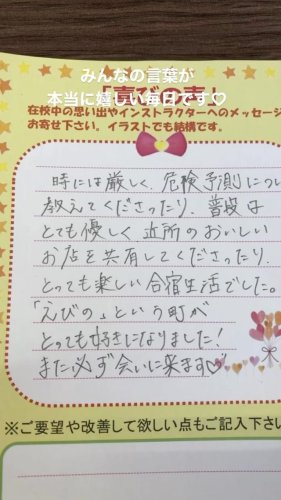 みんなの言葉が
本当に嬉しい毎日です♡
「喜びの声」
在校中の思い出やインストラクターへのメッセージ
お寄せ下さい。イラストでも結構です。
時には厳しく、危険予測につい
教えてくださったり、普段は
とても優しく近所のおいしい
お店を共有してくださったり、
とっても楽しい合宿生活でした。
「えびの」という町が
とっても好きになりました！
また必ず会いに来ます♡
※ご要望や改善して欲しい点もご記入下さい